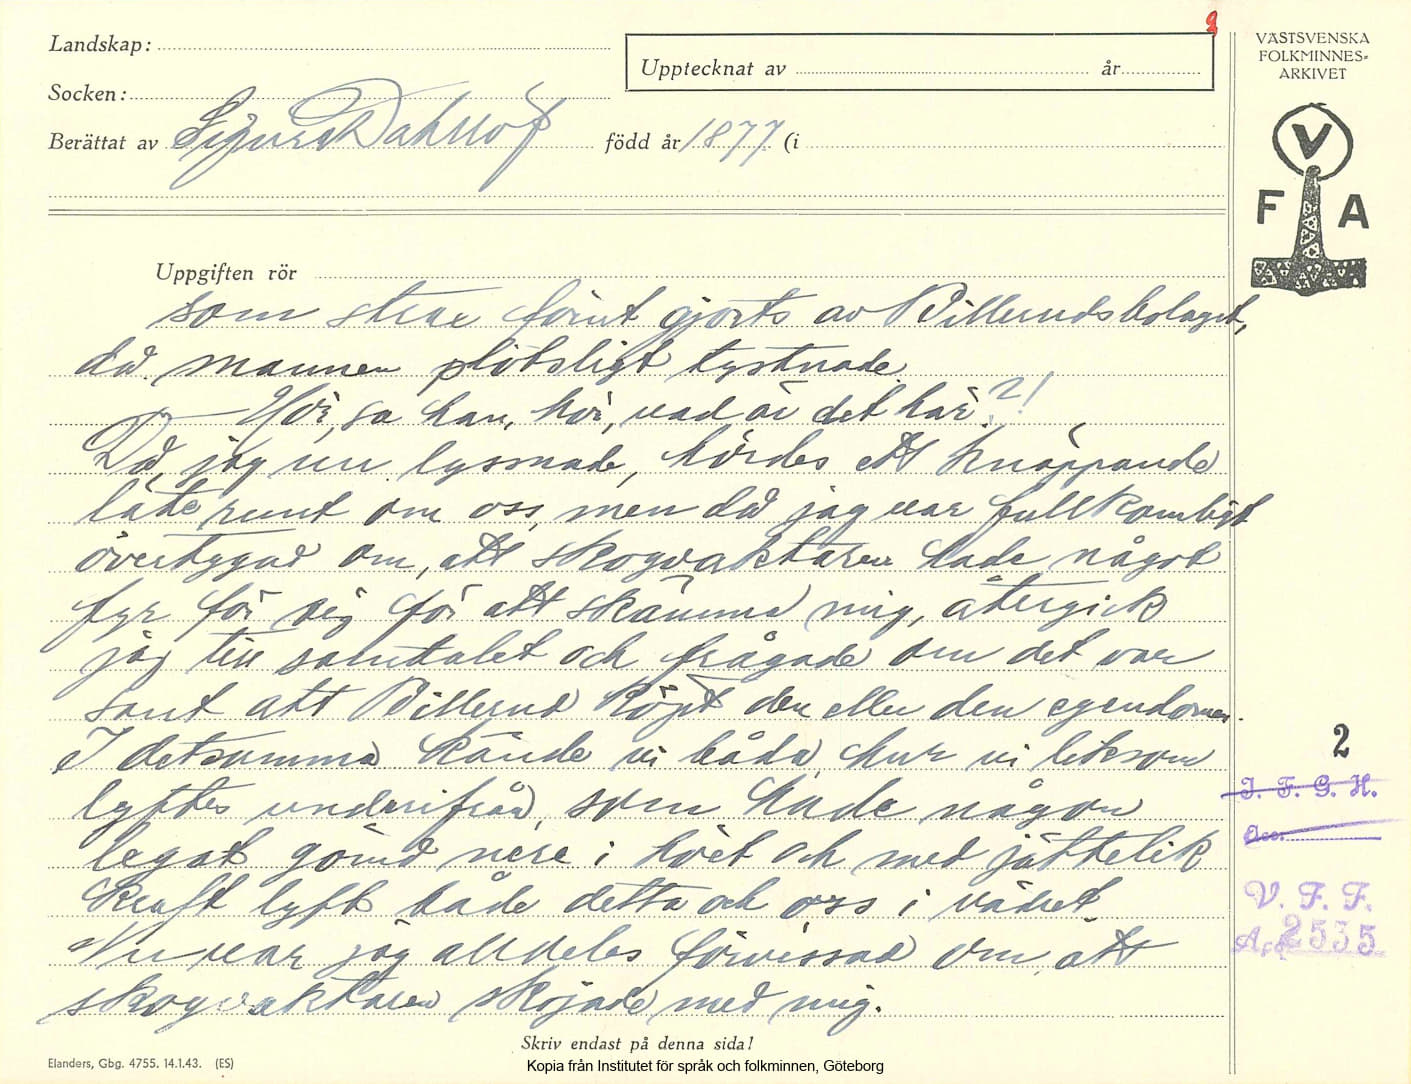 9
Landskap:
VÄSTSVENSKA
FOLKMINNES-
ARKIVET
Upptecknat av år
Socken:
Berättat av Sigurd Dahllöf född år 1877 (i
V
F A
Uppgiften rör
som strax förut gjorts av Billerudsbolaget,
då mannen plötsligt tystnade.
— Hör, sa han, hör, vad är det här?!
Då jag nu lyssnade, hördes ett knäppande
läte runt om oss, men då jag var fullkomligt
övertygad om, att skogvaktaren hade något
fyr för sig för att skrämma mig, återgick
jag till samtalet och frågade om det var
sant att Billerud köpt den eller den egendomen.
I detsamma kände vi båda, hur vi liksom
lyftes underifrån, som hade någon
legat gömd nere i höet och med jättelik
kraft lyft både detta och oss i vädret.
Nu var jag alldeles förvissad om, att
skogvaktaren skojade med mig.
2
I. F. G. H.
Acc.
V. F. F.
Acc. 2535
Skriv endast på denna sida!
Elanders, Gbg. 4755. 14.1.43. (ES)
Kopia från Institutet för språk och folkminnen, Göteborg